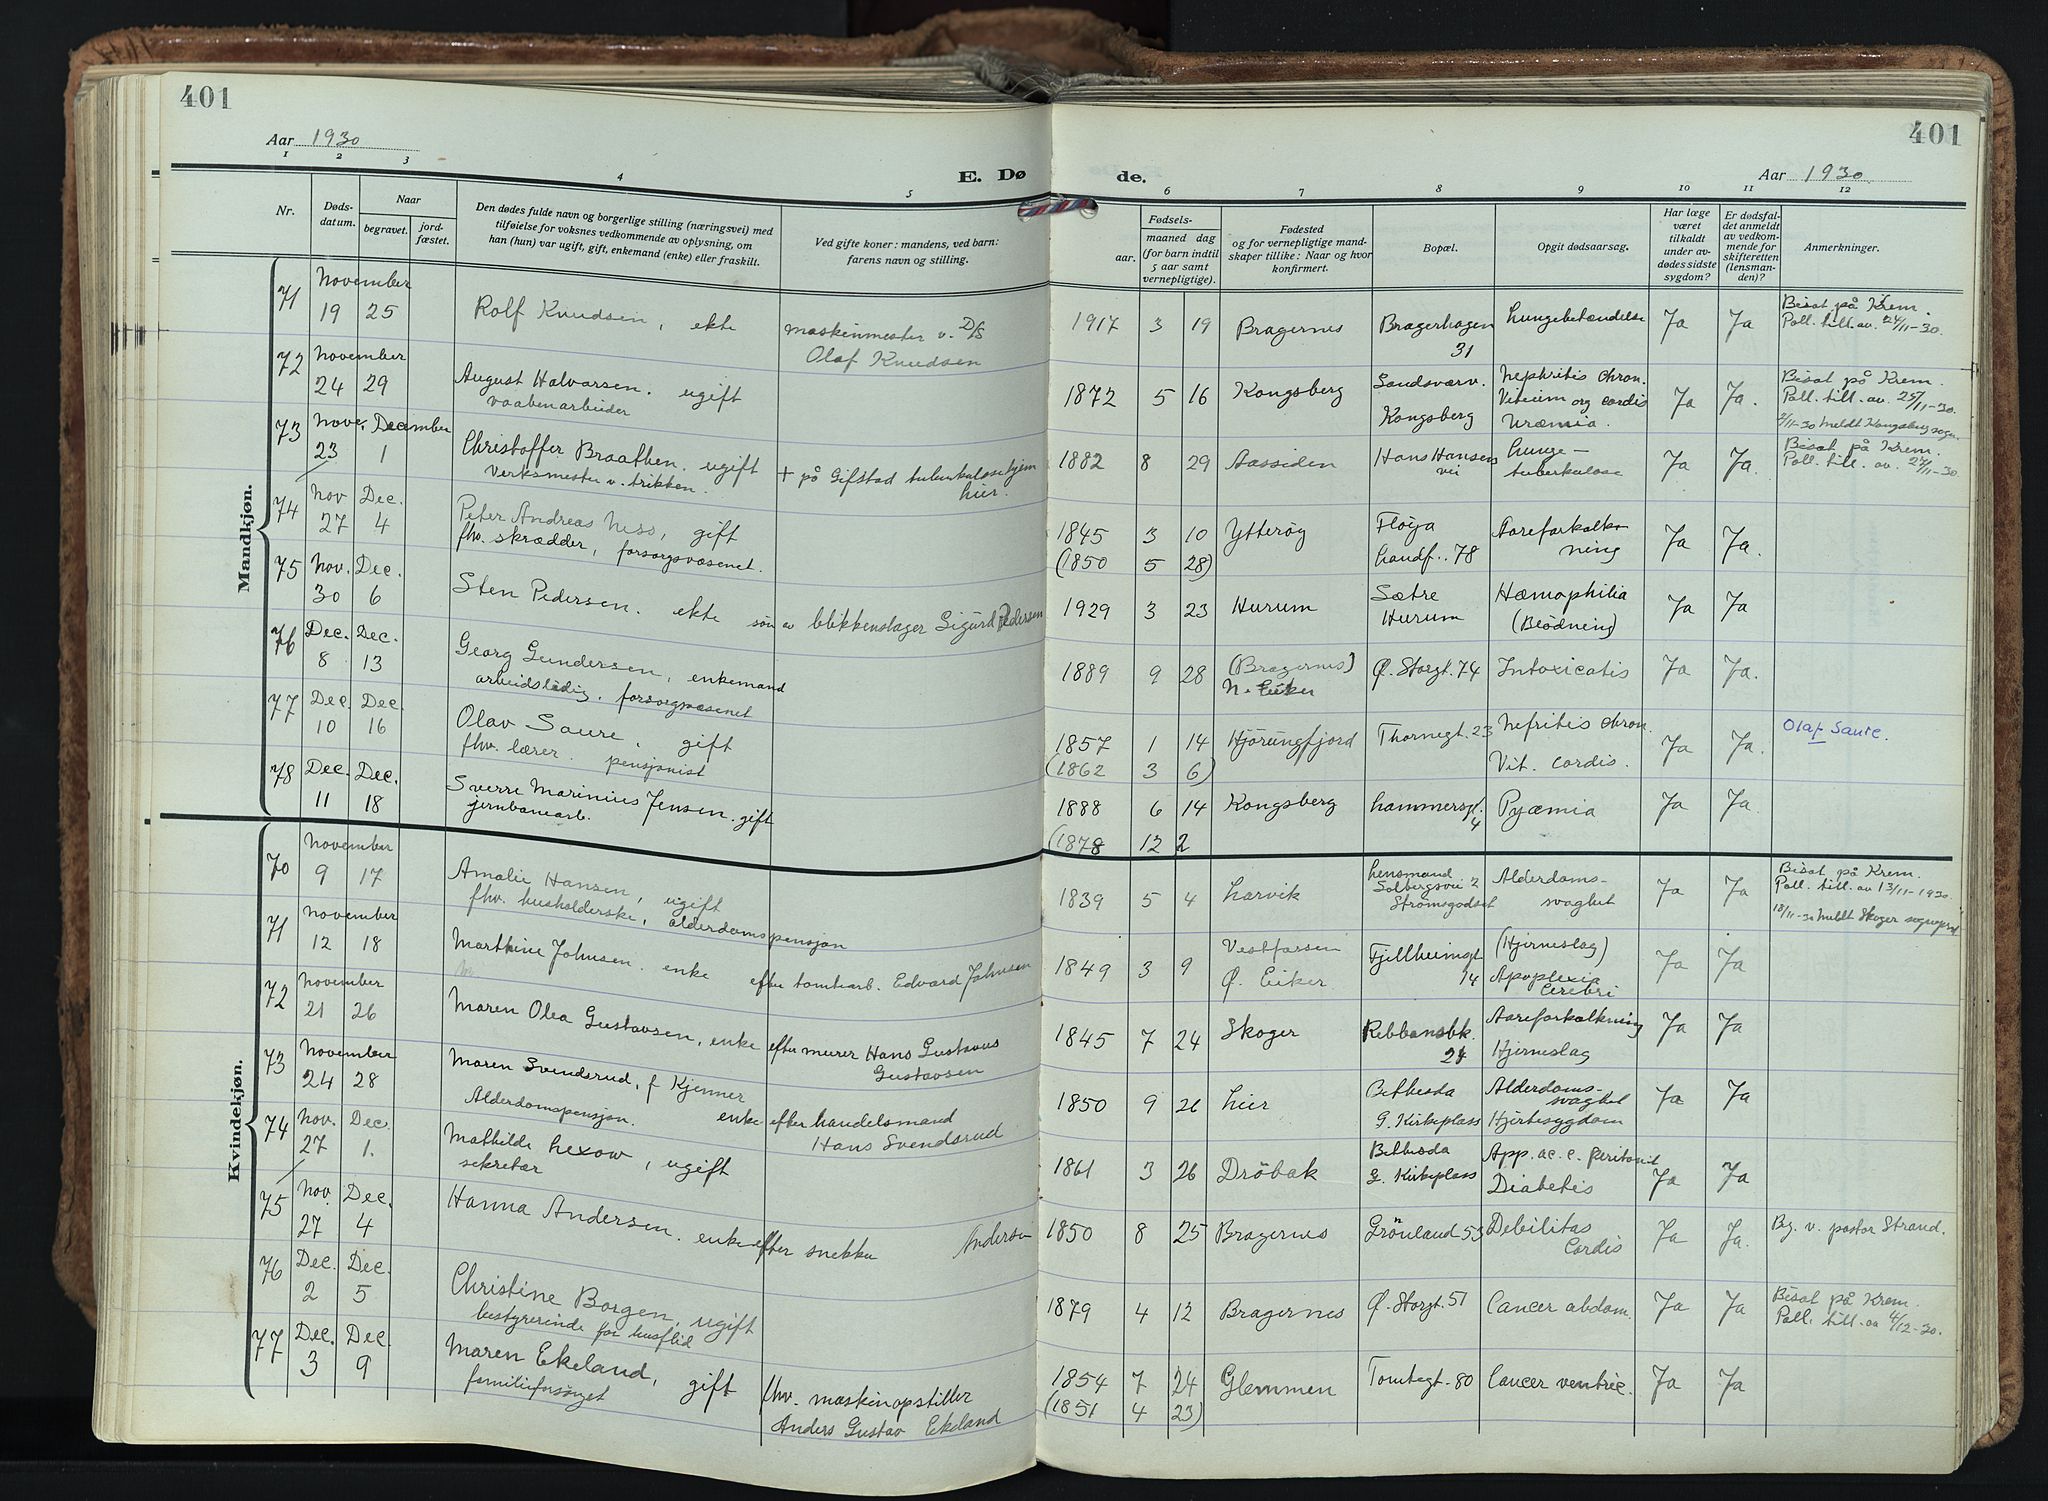 401
401
Aar 1930
Aar 1930
E. Dø de.
1 2 3 4 5 6 7 8 9 10 11 12
Nr.
Døds-
datum.
Naar
begravet.
jord-
fæstet.
Den dødes fulde navn og borgerlige stilling (næringsvei) med
tilføielse for voksnes vedkommende av oplysning, om
han (hun) var ugift, gift, enkemand (enke) eller fraskilt.
Ved gifte koner: mandens, ved barn:
farens navn og stilling.
Fødsels-
aar. maaned dag
(for barn indtil
5 aar samt
vernepligtige).
Fødested
og for vernepligtige mand-
skaper tillike: Naar og hvor
konfirmert.
Bopæl.
Opgit dødsaarsag.
Har læge
været
tilkaldt
under av-
dødes sidste
sygdom?
Er dødsfal-
det anmeldt
av vedkom-
mende for
skifteretten
(lensman-
den)?
Anmerkninger.
Mandkjøn.
71 November
19 25
Rolf Knudsen, ekte
maskinmester v. D/S
Olaf Knudsen
1917 3 19 Bragernes
Bragerhagen
31
Lungebetændelse
Ja Ja
Bisat på Krem.
Poll. till. av. 24/11-30.
72 November
24 29
August Halvorsen. ugift
vaabenarbeider
1872 5 16 Kongsberg
Sandsværv.
Kongsberg
Nephritis chron.
Vitium org cordis
Uræmia.
Ja Ja.
Bisat på Krem.
Poll. till. av. 25/11-30.
2/11-30 meldt Kongsberg sogn.
73 Nov. December
23 1
Christoffer Braathen. ugift
Verksmester v. trikken.
+ på Gifstad tuberkulosehjem
hier.
1882 8 29 Aassiden
Hans Hansens
vei
Lunge-
tuberkulose
Ja Ja.
Bisat på Krem.
Poll. till. av. 27/11-30
74 Nov Dec.
27 4
Peter Andreas Ness, gift
fhv. skrædder, forsorgsvæsenet.
1845 3 10 Ytterøy
(1850 5 28)
Fløya
Landf.. 78
Aareforkalk-
ning
Ja Ja.
75 Nov. Dec.
30 6
Sten Pedersen. ekte
søn av blikkenslager Sigurd Pedersen
1929 3 23 Hurum
Sætre
Hurum
Hæmophilia
(Blödning)
Ja Ja
76 Dec. Dec.
8 13
Georg Gundersen, enkemand
arbeidsledig. forsorgvæsenet
1889 9 28 (Bragernes)
N. Eiker
Ø. Storgt. 74
Intoxicatis
Ja Ja.
77 Dec. Dec.
10 16
Olav Saure. gift
fhv. lærer. pensjonist
1857 1 14 Hjørungfjord
(1862 3 6)
Thornegt. 23
Nefritis chron.
Vit. cordis.
Ja Ja.
Olaf Saure.
78 Dec. Dec.
11 18
Sverre Marinius Jensen. gift
jernbanearb.
1888 6 14 Kongsberg
(1878 12 2
Hammersgt.
4
Pyæmia
Ja Ja.
Kvindekjøn.
70 November
9 17
Amalie Hansen, ugift
fhv. husholderske, alderdomspensjon
1839 5 4 Larvik
Lensmand
Solbergsvei 2
Strømsgodset
Alderdoms-
svaghet
Ja Ja
Bisat på Krem.
Poll. till. av 13/11-1930
18/11-30 meldt Skoger sogneprest
71 November
12 18
Marthine Johnsen. enke
efter tomtearb. Edvard Johnsen
1849 3 9
Vestfossen
Ø. Eiker.
Fjellheimsgt
14
(Hjerneslag)
Apoplexia
Cerebri
Ja Ja
72 November
21 26
Maren Olea Gustavsen, enke
efter murer Hans Gustavus
Gustavsen
1845 7 24 Skoger
Rebbansbk.
24
Aareforkalkning
Hjerneslag
Ja Ja
73 November
24 28
Maren Svendsrud, f Kjenner
Alderdomspensjon. enke
efter handelsmand
Hans Svendsrud
1850 9 26 Lier
Bethesda
G. Kirkeplass
Alderdoms-
svaghet
Hjertesygdom
Ja Ja
74 Nov. Dec.
27 1.
Mathilde Lexow, ugift
sekretær
1861 3 26 Drøbak
Bethesda
G. Kirkeplass
App. ac. c. peritonit
Diabetis
Ja Ja
75 Nov. Dec.
27 4
Hanna Andersen. enke
efter snekker Andersen
1850 8 25 Bragernes
Grønland 53
Debilitas
Cordis
Ja Ja.
Bg. v. pastor Strand.
76 Dec. Dec.
2 5
Christine Borgen, ugift
bestyrerinde for husflid
1879 4 12 Bragernes
Ø. Storgt. 51
Cancer abdom.
Ja Ja
Bisat på Krem.
Poll. till. av 4/12-30.
77 Dec. Dec.
3 9
Maren Ekeland, gift
familieforsørget
fhv. maskinopstiller
Anders Gustav Ekeland
1854 7 24 Glemmen
(1851 4 23)
Tomtegt. 80
Cancer ventric.
Ja Ja